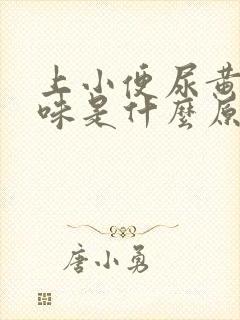 上小便尿黄
味是什麼原
唐小勇